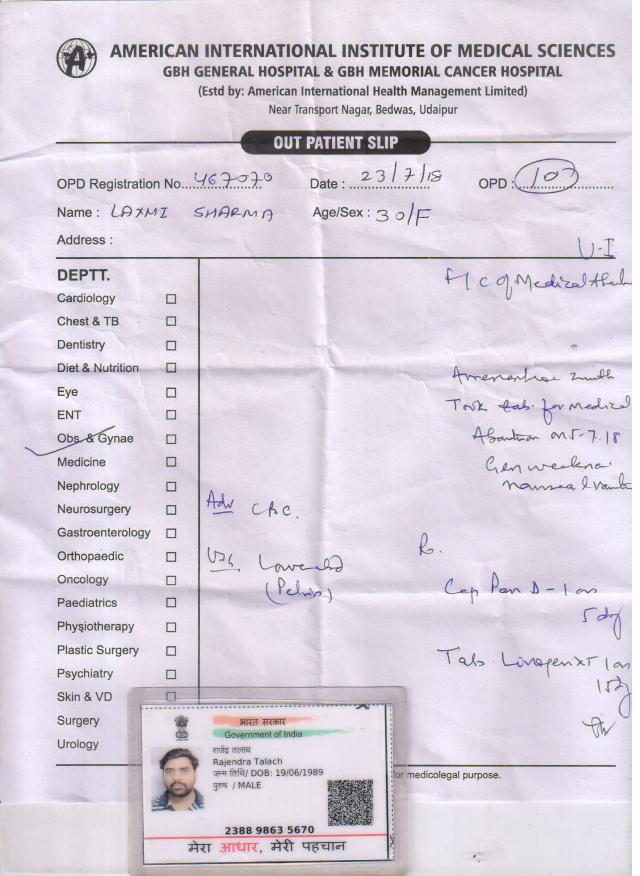 AMERICAN INTERNATIONAL INSTITUTE OF MEDICAL SCIENCES
GBH GENERAL HOSPITAL & GBH MEMORIAL CANCER HOSPITAL
(Estd by: American International Health Management Limited)
Near Transport Nagar, Bedwas, Udaipur
OUT PATIENT SLIP
OPD Registration No. 467070 Date : 23/7/18 OPD : 107
Name : LAXMI SHARMA Age/Sex : 30/F
Address :
U-I
DEPTT.
H/C of Medical
Cardiology
Chest & TB
Dentistry
Diet & Nutrition
Eye
Took tab. for Medical
ENT
Obs. & Gynae
on 5-7.18
Medicine
Gen
Nephrology
Neurosurgery
Adv CBC.
Gastroenterology
Orthopaedic
R.
Oncology
(Pelvis)
Cap Pan D - 1 on
Paediatrics
5 dy
Physiotherapy
Plastic Surgery
Tab. XT 1 on
Psychiatry
15 dy
Skin & VD
Surgery
Urology
for medicolegal purpose.
भारत सरकार
Government of India
राजेंद्र तलाच
Rajendra Talach
जन्म तिथि/ DOB: 19/06/1989
पुरुष / MALE
2388 9863 5670
मेरा आधार, मेरी पहचान